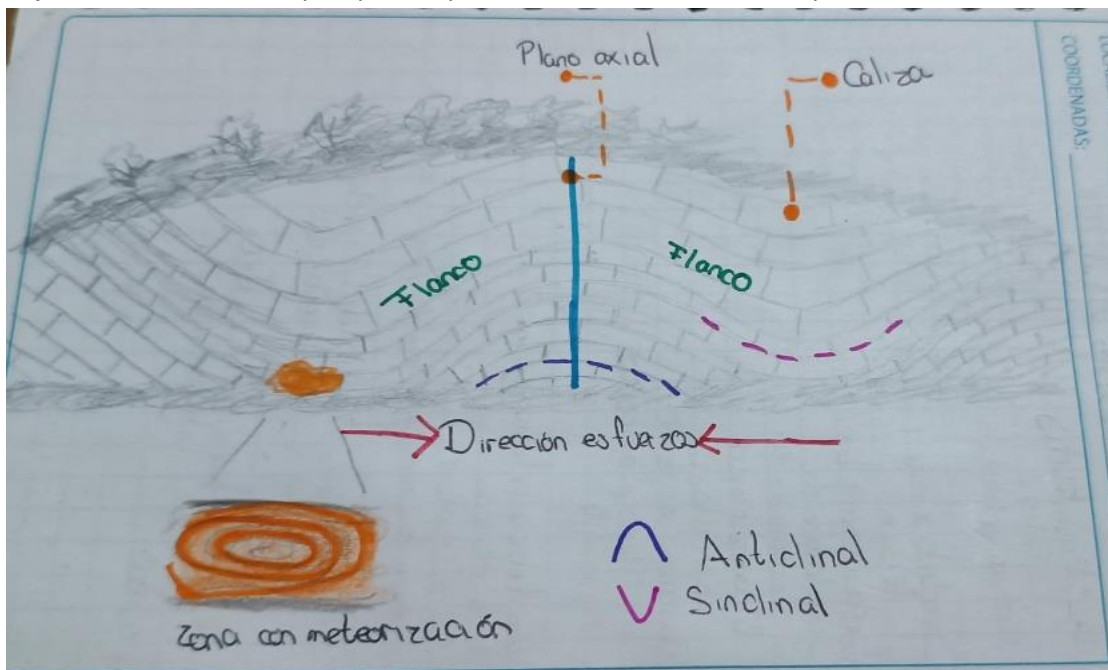 Plano axial
Caliza
COORDENADAS:
Flanco
Flanco
Dirección esfuerzos
Anticlinal
Sinclinal
Zona con meteorización